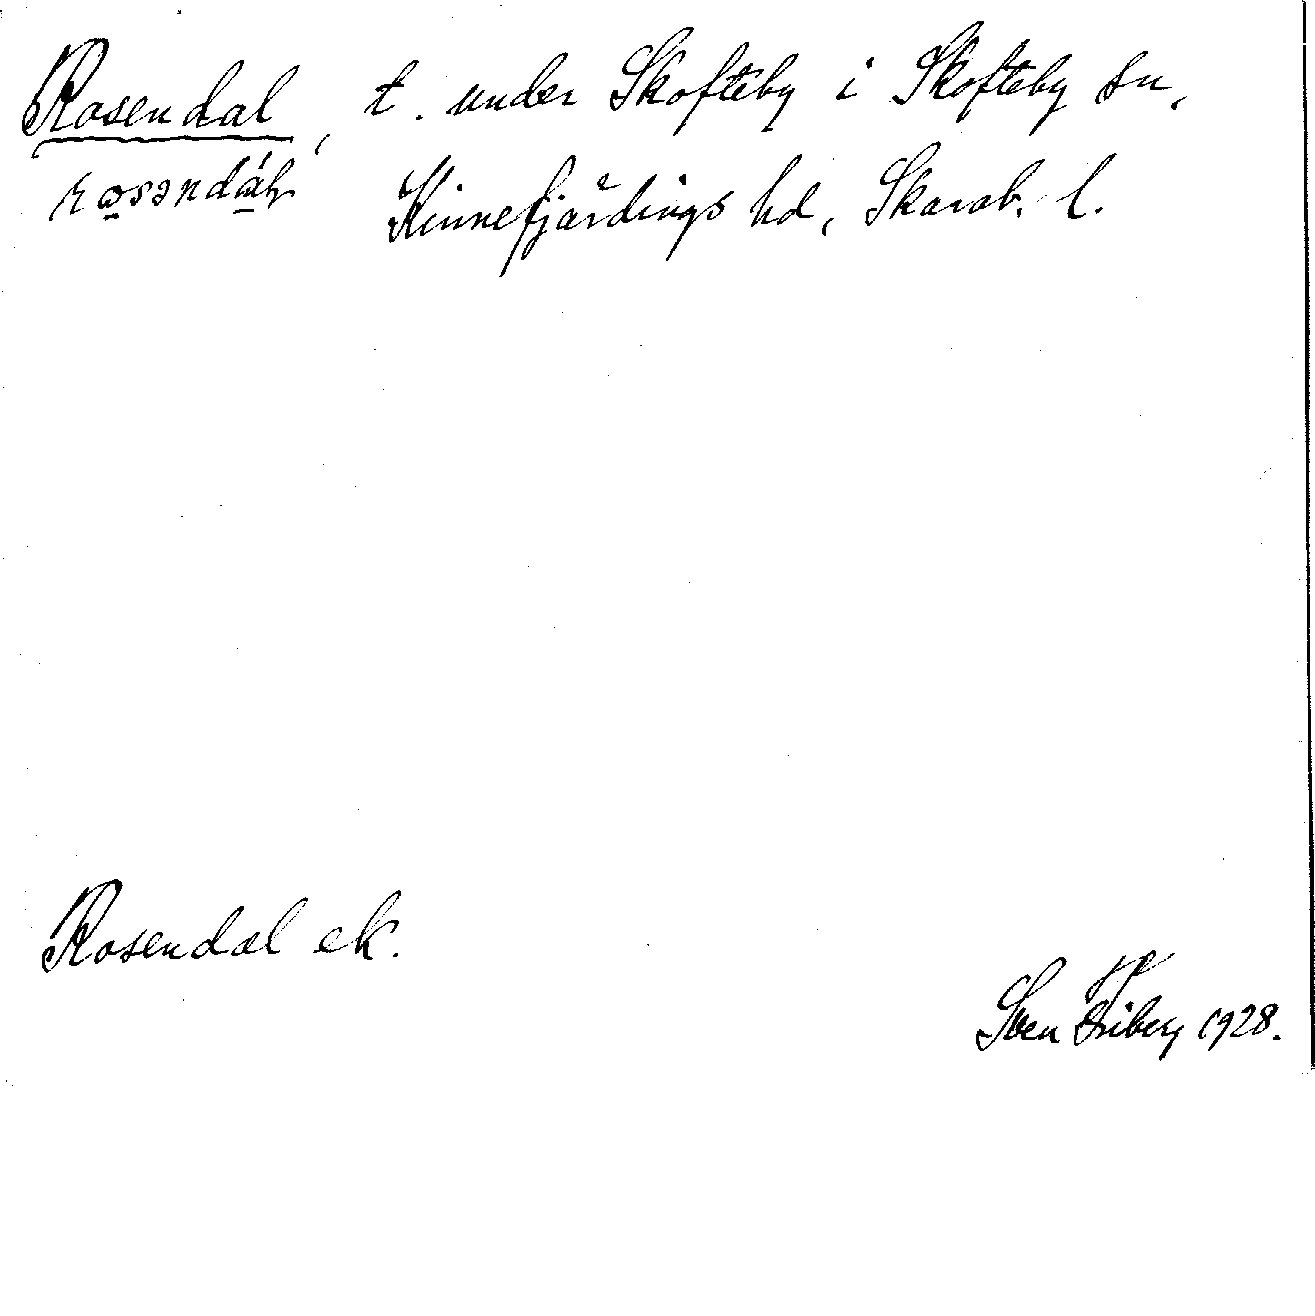 Rosendal, t. under Skofteby i Skofteby sn,
Kinnefjärdings hd, Skarab. l.
Rosendal ek.
Sven Friberg 1928.